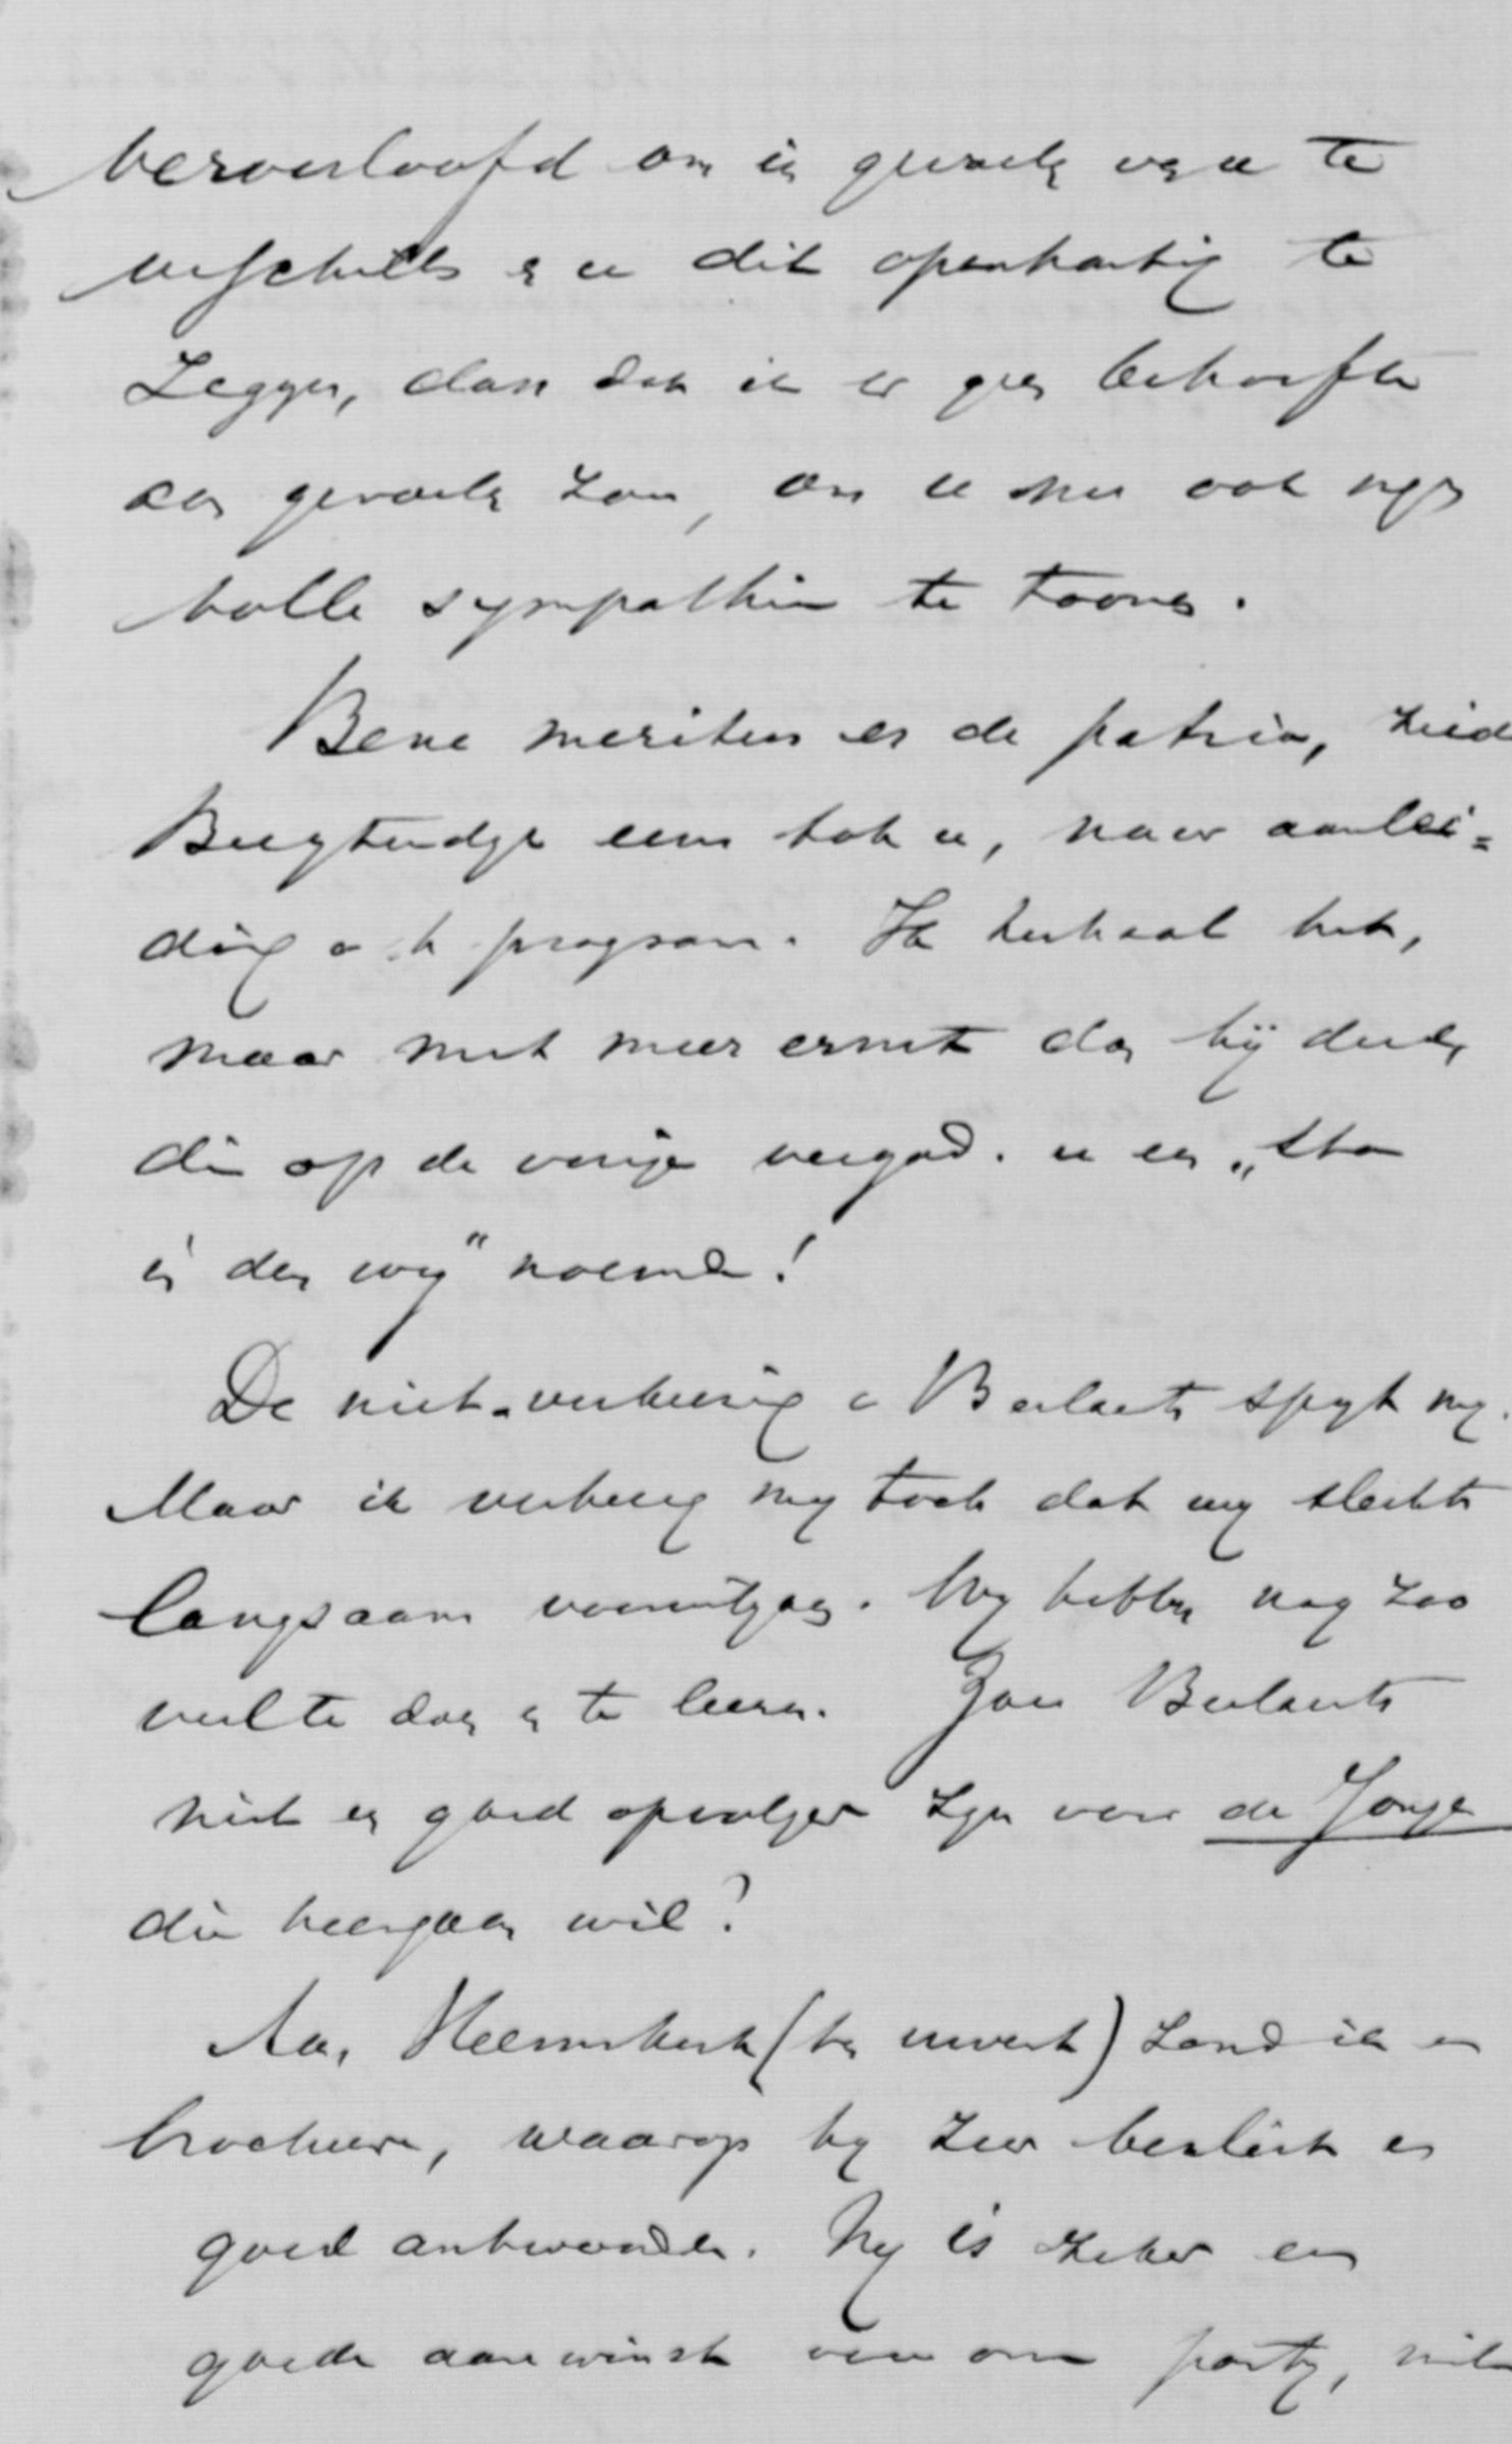 veroorloofd om in gevoelen van u te
verschillen en u dit openhartig te
zeggen, dan dat ik er geen behoefte
aan gevoelen zou, om u nu ook mijn
volle sympathie te toonen.
Bene meritus es de patria, zeide
eens tot u, naar aanlei=
ding v h program. Ik herhaal het,
maar met meer ernst dan hij deed,
die op de vorige vergad. u een „sta
in den weg" noemde!
De niet-verkiezing v Beelaerts spijt mij.
Maar ik verheug mij toch dat wij slechts
langzaam vooruitgaan. Wij hebben nog zoo
veel te doen en te leeren. Zou Beelaerts
niet een goed opvolger zijn voor de Jonge
die heengaan wil?
Aan Heemskerk (ten unvent) zond ik een
brochure, waarop hij zeer beslist en
goed antwoordde. Hij is zeker een
goede aanwinst voor onze partij, met